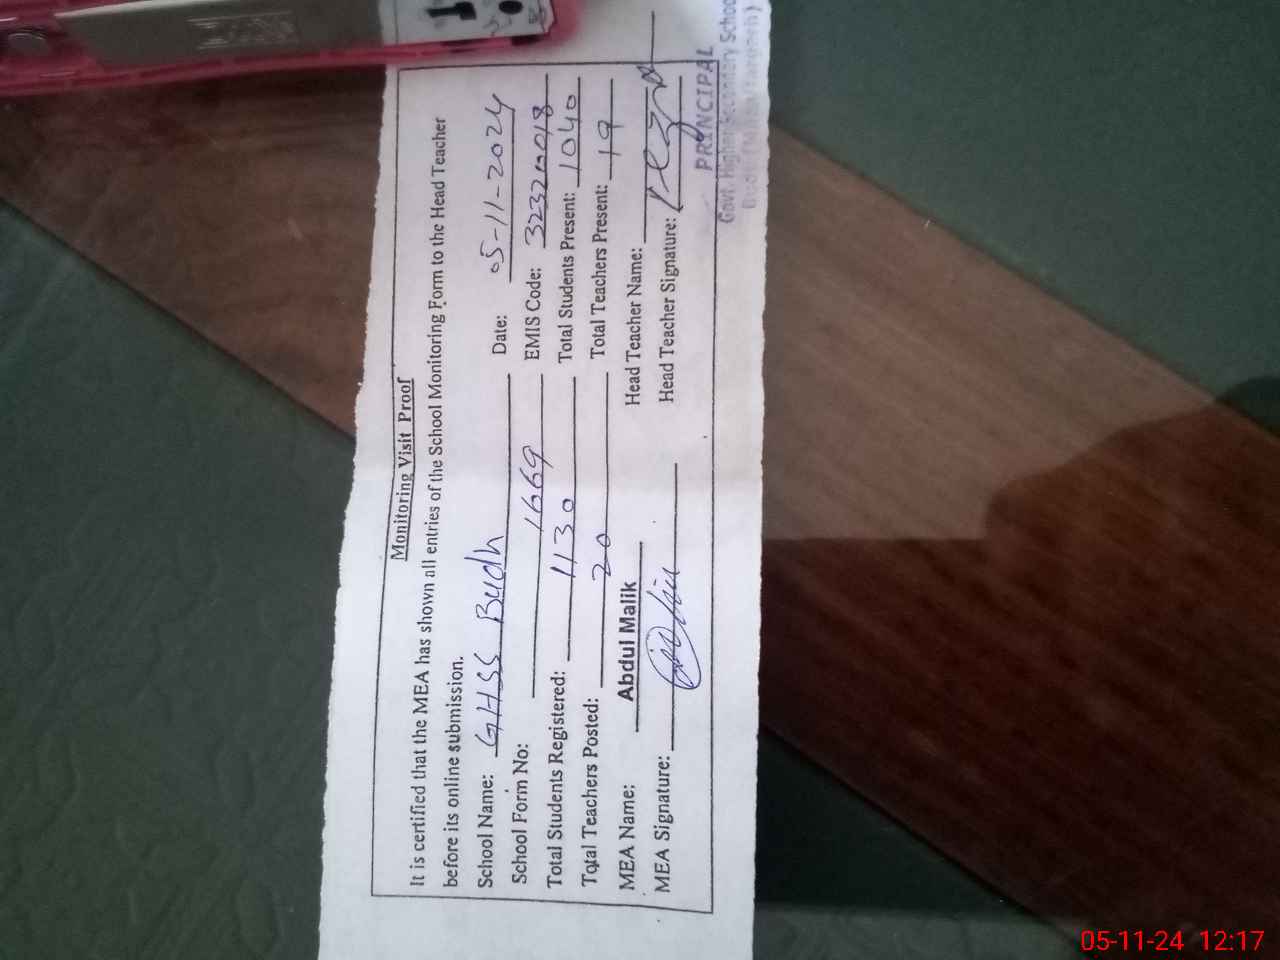 Monitoring Visit Proof
It is certified that the MEA has shown all entries of the School Monitoring Form to the Head Teacher
before its online submission.
School Name: GHSS Budh Date: 05-11-2024
School Form No: 1669 EMIS Code: 32320018
Total Students Registered: 1130 Total Students Present: 1040
Total Teachers Posted: 20 Total Teachers Present: 19
MEA Name: Abdul Malik Head Teacher Name:
MEA Signature: Head Teacher Signature:
PRINCIPAL
Govt. Higher Secondary School
05-11-24 12:17